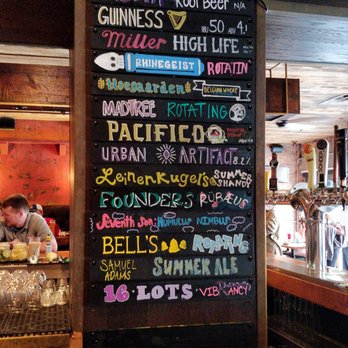 ROOT BEER N/A
GUINNESS IBU 50 ABV 4.1
Miller HIGH LIFE
RHINEGEIST ROTATIN
Hoegaarden BELGIAN WHEAT
MADTREE ROTATING
PACIFICO
URBAN ARTIFACT 8.2%
Leinenkugel's SUMMER SHANDY
FOUNDERS RUBÆUS
Seventh Son: HUMULUS NIMBUS
BELL'S
SAMUEL ADAMS SUMMER ALE
16 LOTS VIBRANCY